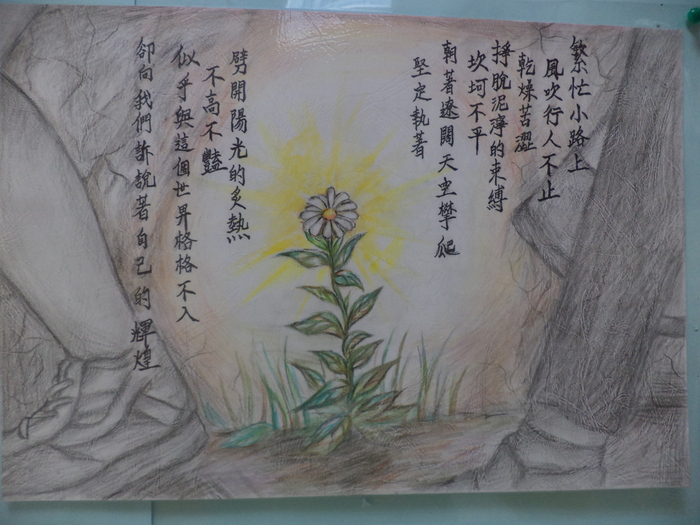 繁忙小路上
風吹行人不止
乾燥苦澀
掙脫泥濘的束縛
坎坷不平
朝著遼闊天空攀爬
堅定執著
劈開陽光的炙熱
不高不豔
似乎與這個世界格格不入
卻向我們訴說著自己的輝煌